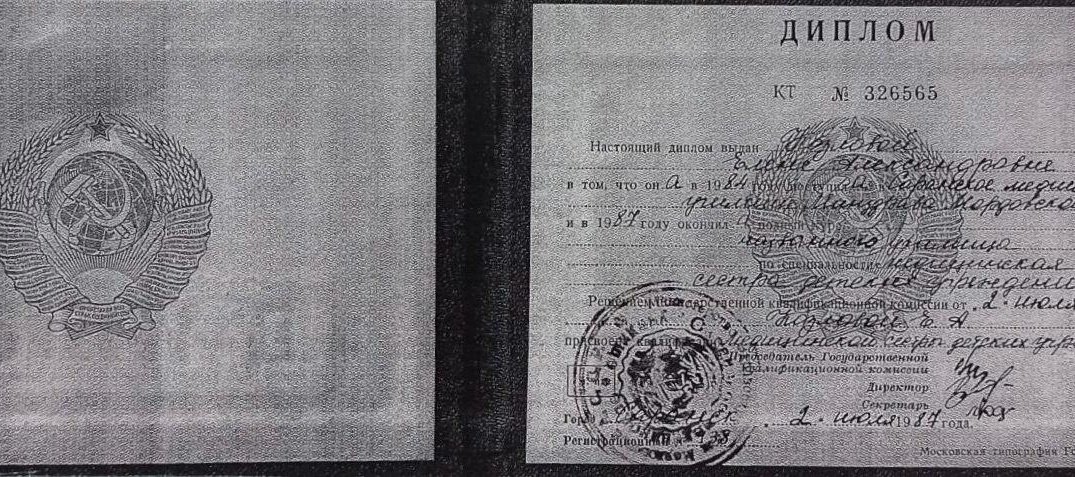 ДИПЛОМ
КТ № 326565
Настоящий диплом выдан Козловой
Елене Александровне
в том, что он а в 1984 году поступил а в Саранское медиц
училище Минздрава Мордовской
и в 1987 году окончил а полный курс
названного училища
по специальности медицинская
сестра детских учреждени
Решением Государственной квалификационной комиссии от 2 июля
Козловой Е. А
присвоена квалификация медицинской сестры детских учр
Председатель Государственной
квалификационной комиссии
Директор
Секретарь
Город Саранск 2 июля 1987 года.
Регистрационный №
Московская типография Го